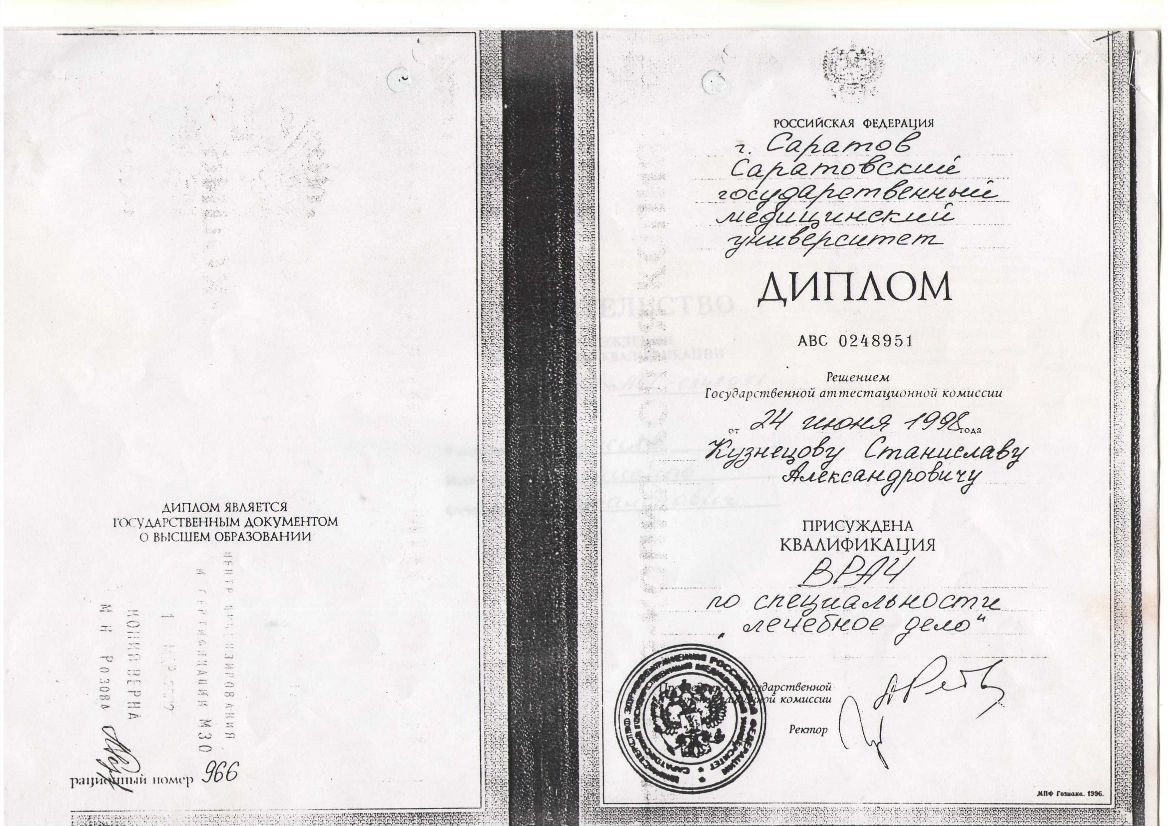 ДИПЛОМ ЯВЛЯЕТСЯ
ГОСУДАРСТВЕННЫМ ДОКУМЕНТОМ
О ВЫСШЕМ ОБРАЗОВАНИИ
И СЕРТИФИКАЦИИ МЗО
КОПИЯ ВЕРНА
М Н Розова
рационный номер 966
РОССИЙСКАЯ ФЕДЕРАЦИЯ
г. Саратов
Саратовский
государственный
медицинский
университет
ДИПЛОМ
АВС 0248951
Решением
Государственной аттестационной комиссии
от 24 июня 1998 года
Кузнецову Станиславу
Александровичу
ПРИСУЖДЕНА
КВАЛИФИКАЦИЯ
ВРАЧ
по специальности
„лечебное дело"
государственной
комиссии
Ректор
МПФ Гознака. 1996.